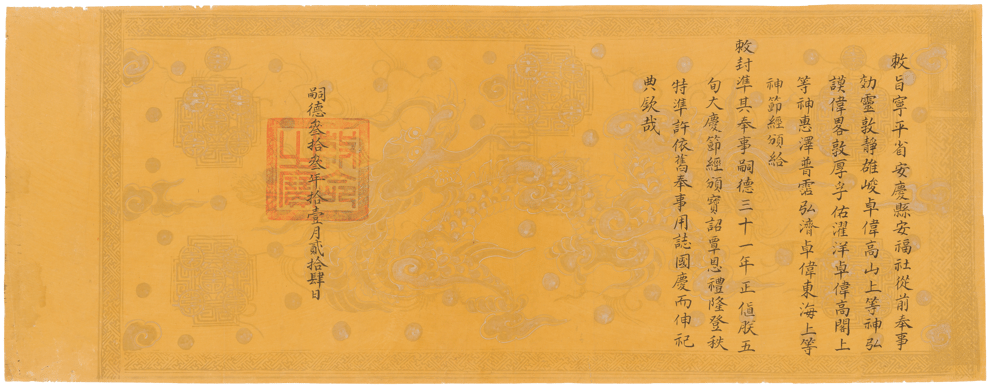 敕旨寧平省安慶縣安福社從前奉事
効靈敦靜雄峻卓偉高山上等神弘
謨偉畧敦厚孚佑濯洋卓偉高閣上
等神惠澤普霑弘濟卓偉東海上等
神節經頒給
敕封準其奉事嗣德三十一年正值朕五
旬大慶節經頒寶詔覃恩禮隆登秩
特準許依舊奉事用誌國慶而伸祀
典欽哉
嗣德叁拾叁年拾壹月貳拾肆日
敕命之寶